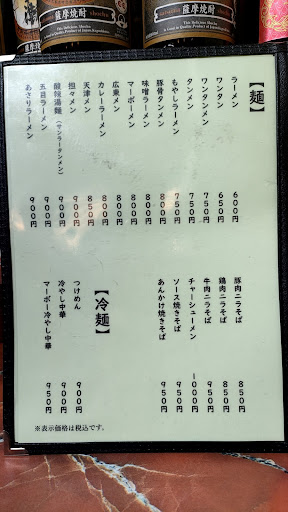 薩摩焼酎
薩摩焼酎
【麺】
ラーメン 600円
ワンタン 650円
ワンタンメン 750円
タンメン 750円
もやしラーメン 750円
豚骨ラーメン 800円
味噌ラーメン 800円
マーボーメン 800円
広東メン 800円
カレーラーメン 800円
天津メン 850円
担々メン 900円
酸辣湯麺(サンラータンメン) 900円
五目ラーメン 900円
あさりラーメン 900円
豚肉ニラそば 850円
鶏肉ニラそば 850円
牛肉ニラそば 950円
チャーシューメン 1000円
ソース焼きそば 950円
あんかけ焼きそば 950円
【冷麺】
つけめん 900円
冷やし中華 900円
マーボー冷やし中華 950円
※表示価格は税込です。